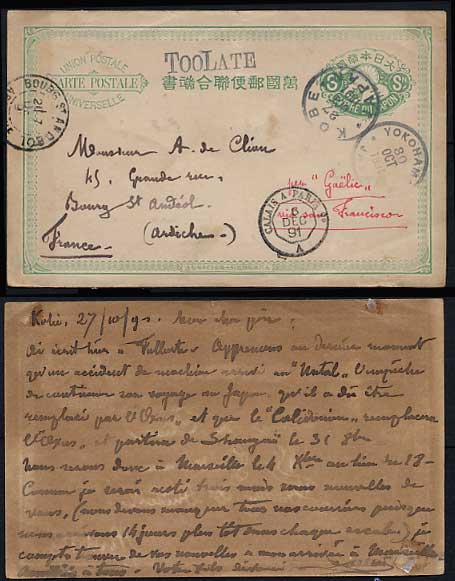 TOO LATE
UNION POSTALE
CARTE POSTALE
UNIVERSELLE
萬國郵便聯合端書
大日本帝國
KOBE
JAPAN
YOKOHAMA
30
OCT
BOURG-ST ANDEOL
Monsieur A. de Clion
45, Grande rue,
Bourg St Andéol
France (Ardèche)
per "Gaelic"
via San Francisco
CALAIS A PARIS
6
DEC
91
A
Kobé, 27/10/91. Mon cher père,
Ai écrit hier. Apprenons au dernier moment
qu'un accident de machine arrivé au "Natal" l'empêche
de continuer son voyage au Japon, qu'il a dû être
remplacé par l'Oxus, et que le "Calédonien" remplacera
l'Oxus, et partira de Shangaï le 31 8bre
Nous serons donc à Marseille le 4 Xbre au lieu de 18-
Comme je serai resté trois mois sans nouvelles de
vous, (nous devons manquer tous nos courriers puisque
nous arrivons 14 jours plus tôt dans chaque escale) je
compte trouver de vos nouvelles à mon arrivée à Marseille
à tous. Votre fils